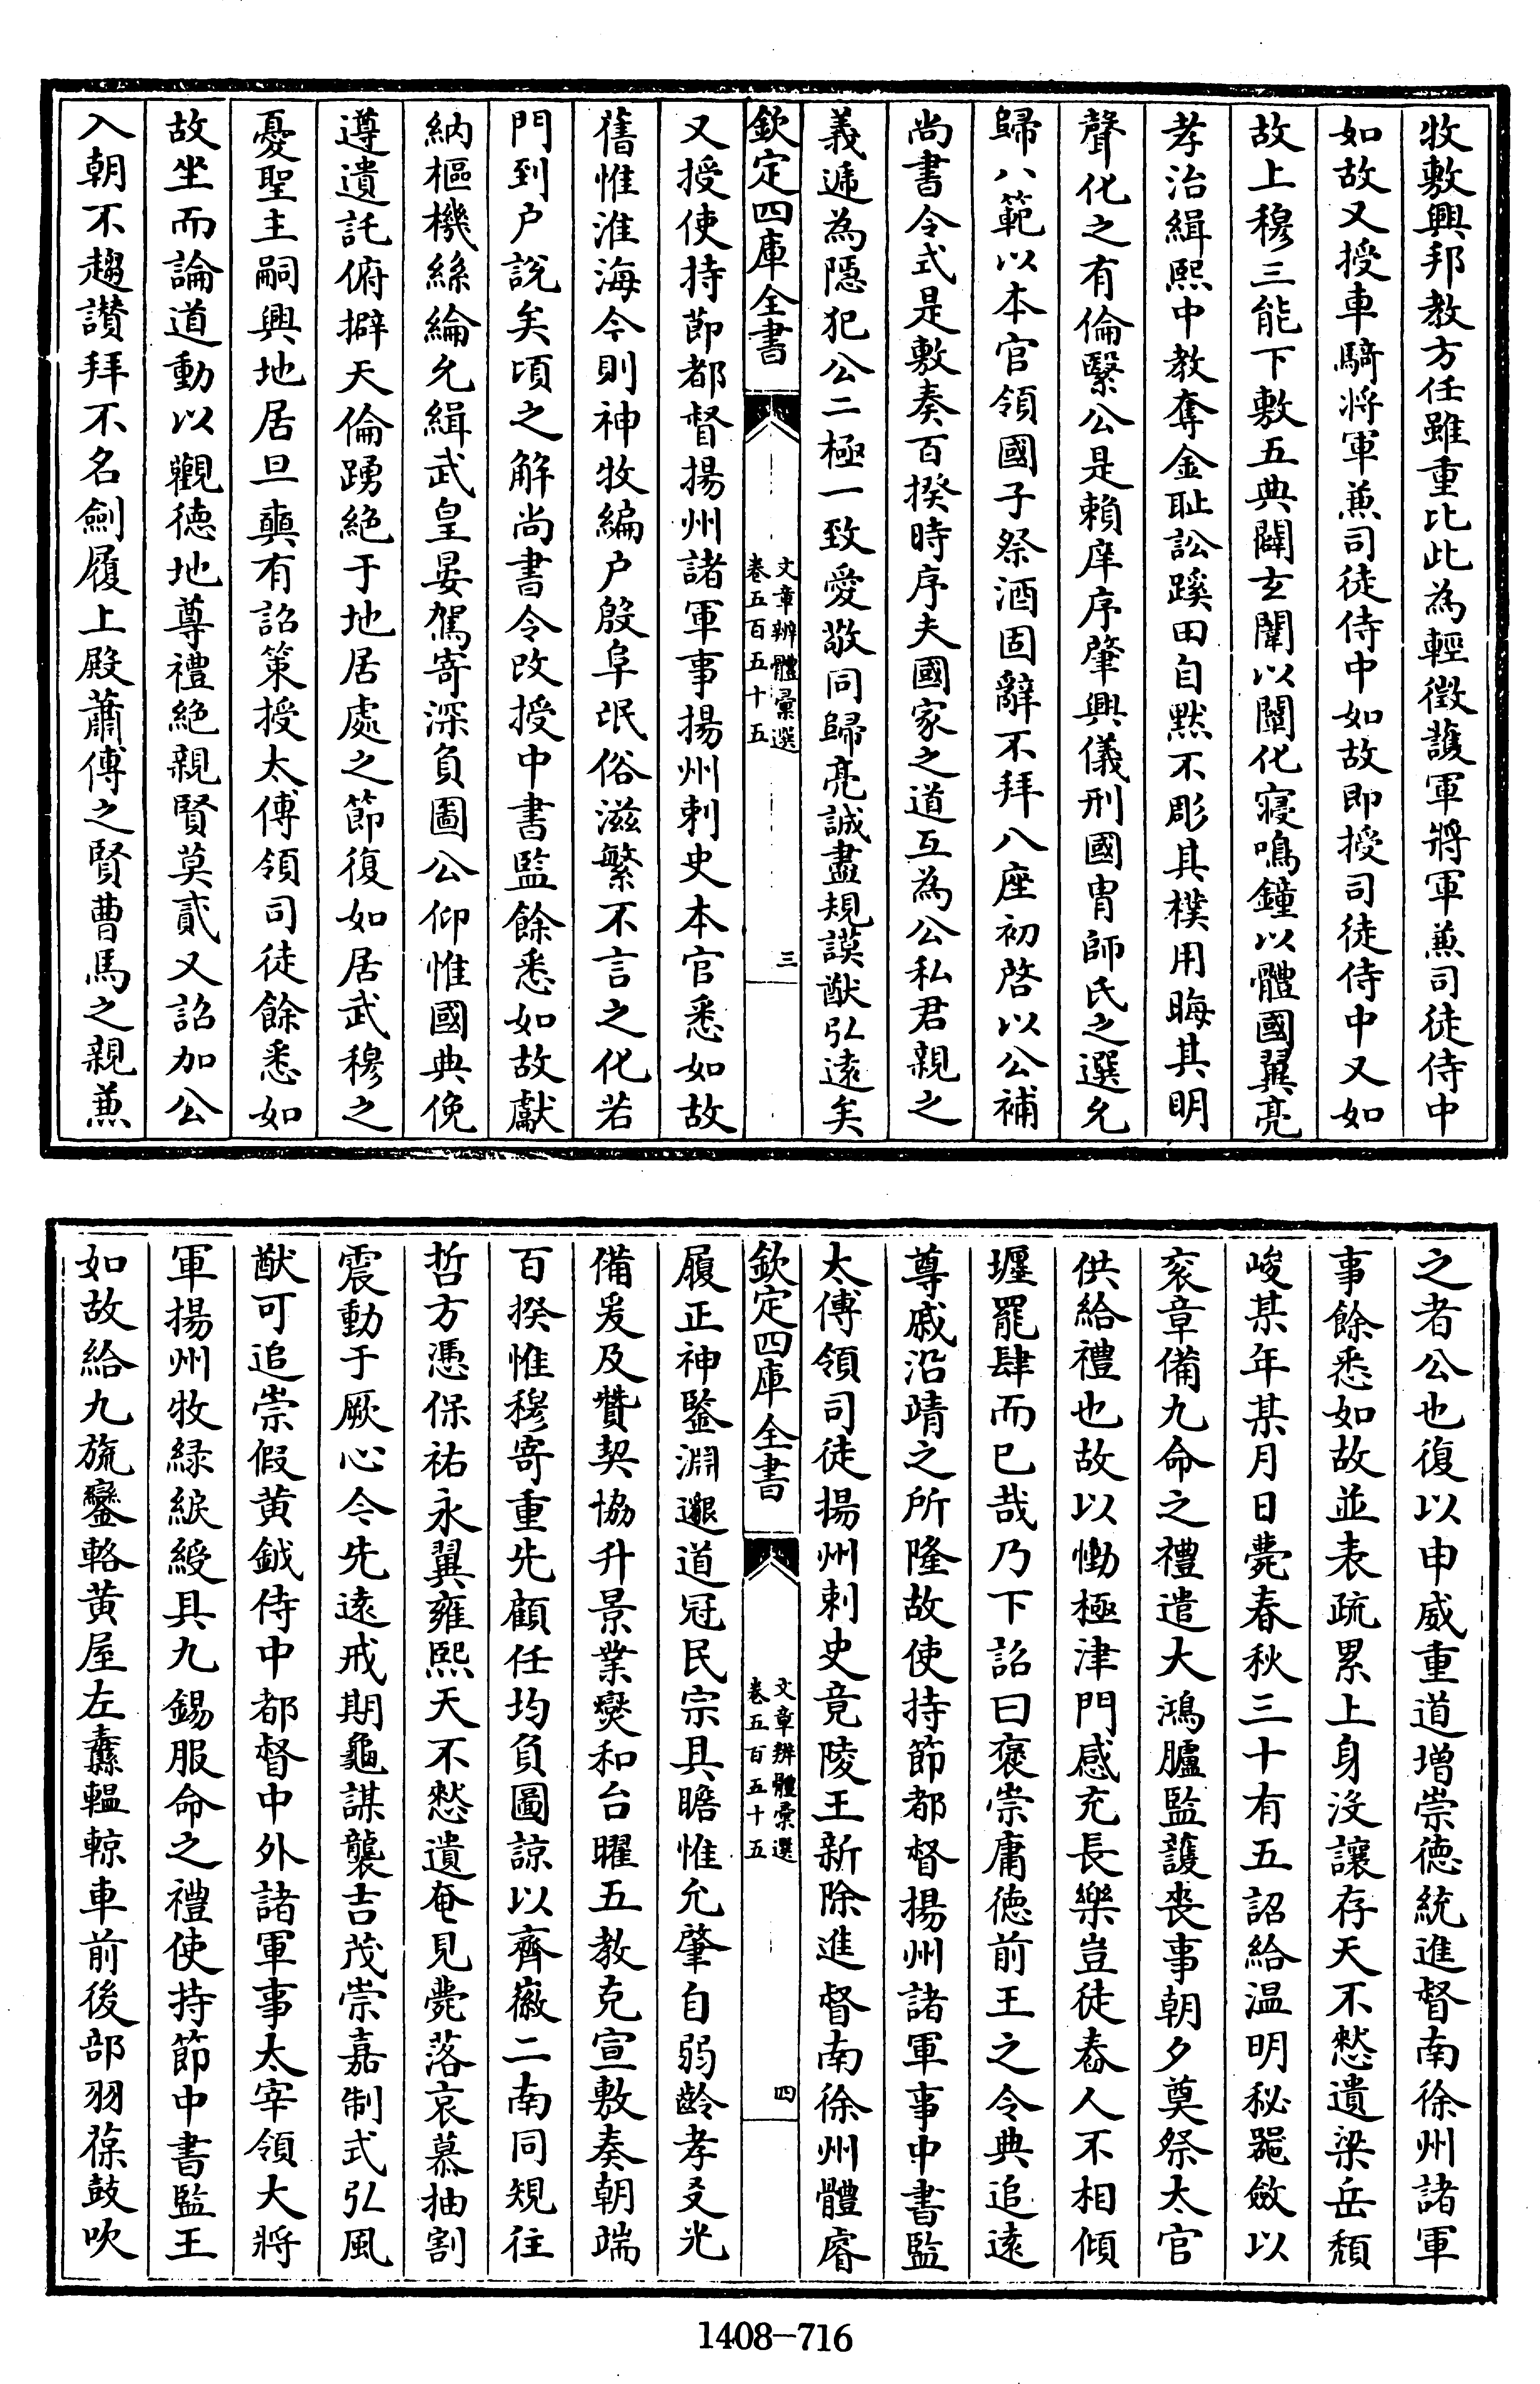 牧敷興邦教方任雖重比此為輕徵護軍將軍兼司徒侍中
如故又授車騎將軍兼司徒侍中如故即授司徒侍中又如
故上穆三能下敷五典闢玄闈以闡化寢鳴鐘以體國翼亮
孝治緝熙中教奪金恥訟蹊田自黙不彫其樸用晦其明
聲化之有倫繄公是賴庠序肇興儀刑國胄師氏之選允
歸八範以本官領國子祭酒固辭不拜八座初啓以公補
尚書令式是敷奏百揆時序夫國家之道互為公私君親之
義遞為隱犯公二極一致愛敬同歸亮誠盡規謨猷弘逺矣
欽定四庫全書
文章辨體彙選
卷五百五十五
三
又授使持節都督揚州諸軍事揚州刺史本官悉如故
舊惟淮海今則神牧編户殷阜氓俗滋繁不言之化若
門到户説矣頃之解尚書令改授中書監餘悉如故獻
納樞機絲綸允緝武皇晏駕寄深負圖公仰惟國典俛
遵遺託俯擗天倫踴絶于地居處之節復如居武穆之
憂聖主嗣興地居旦奭有詔策授太傅領司徒餘悉如
故坐而論道動以觀徳地尊禮絶親賢莫貳又詔加公
入朝不趨讃拜不名劍履上殿蕭傅之賢曹馬之親兼
之者公也復以申威重道增崇徳統進督南徐州諸軍
事餘悉如故並表疏累上身没讓存天不憗遺梁岳頹
峻某年某月日薨春秋三十有五詔給温明秘器斂以
衮章備九命之禮遣大鴻臚監護喪事朝夕奠祭太官
供給禮也故以慟極津門感充長樂豈徒舂人不相傾
㕓罷肆而已哉乃下詔曰褒崇庸徳前王之令典追逺
尊戚沿靖之所隆故使持節都督揚州諸軍事中書監
太傅領司徒揚州刺史竟陵王新除進督南徐州體睿
欽定四庫全書
文章辨體彙選
卷五百五十五
四
履正神鑒淵邈道冠民宗具瞻惟允肇自弱齡孝友光
備爰及贊契協升景業爕和台曜五教克宣敷奏朝端
百揆惟穆寄重先顧任均負圖諒以齊徽二南同規往
哲方憑保祐永翼雍熙天不憗遺奄見薨落哀慕抽割
震動于厥心今先逺戒期龜謀襲吉茂崇嘉制式弘風
猷可追崇假黄鉞侍中都督中外諸軍事太宰領大將
軍揚州牧緑綟綬具九錫服命之禮使持節中書監王
如故給九旒鑾輅黄屋左纛轀輬車前後部羽葆鼓吹
1408-716